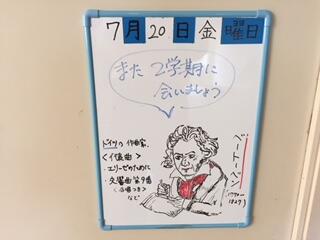 7月20日金曜日
また 2学期に
会いましょう
ドイツの作曲家
<代表曲>
・エリーゼのために
・交響曲第9番
(合唱つき)
など
ベートーベン
(1770〜
1827)